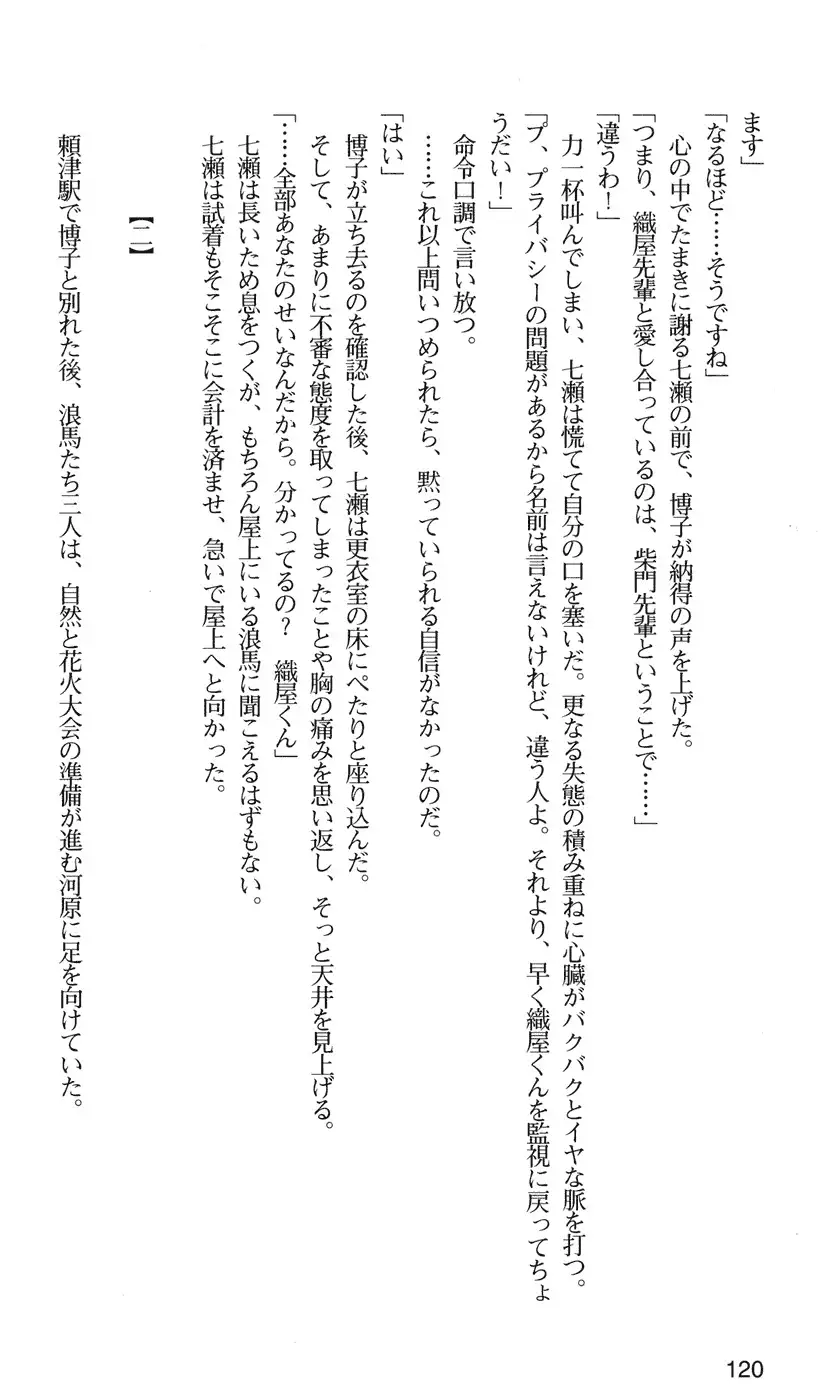 ます」
「なるほど……そうですね」
心の中でたまきに謝る七瀬の前で、博子が納得の声を上げた。
「つまり、織屋先輩と愛し合っているのは、柴門先輩ということで……」
「違うわ！」
力一杯叫んでしまい、七瀬は慌てて自分の口を塞いだ。更なる失態の積み重ねに心臓がバクバクとイヤな脈を打つ。
「プ、プライバシーの問題があるから名前は言えないけれど、違う人よ。それより、早く織屋くんを監視に戻ってちょ
うだい！」
命令口調で言い放つ。
……これ以上問いつめられたら、黙っていられる自信がなかったのだ。
「はい」
博子が立ち去るのを確認した後、七瀬は更衣室の床にぺたりと座り込んだ。
そして、あまりに不審な態度を取ってしまったことや胸の痛みを思い返し、そっと天井を見上げる。
「……全部あなたのせいなんだから。分かってるの？　織屋くん」
七瀬は長いため息をつくが、もちろん屋上にいる浪馬に聞こえるはずもない。
七瀬は試着もそこそこに会計を済ませ、急いで屋上へと向かった。
【二】
頼津駅で博子と別れた後、浪馬たち三人は、自然と花火大会の準備が進む河原に足を向けていた。
120